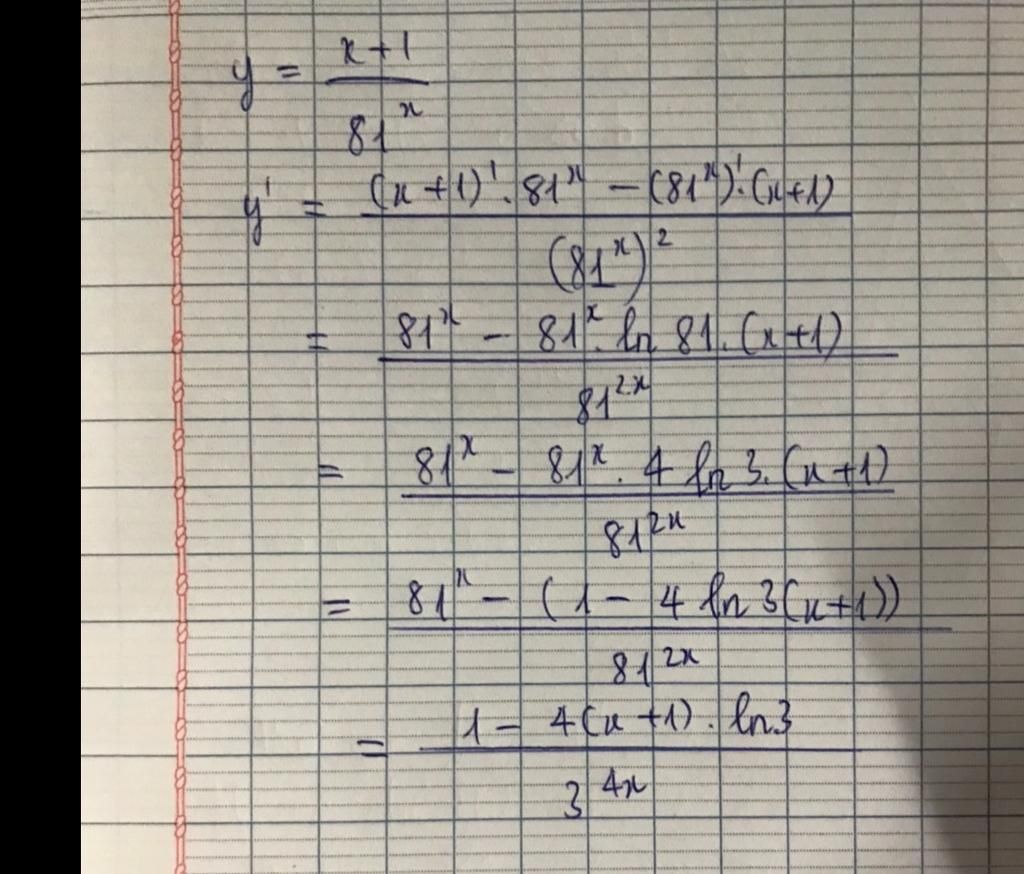 y = (x+1)/(81^x)
y' = ((x+1)'.81^x - (81^x)'.(x+1))/((81^x)^2)
= (81^x - 81^x.ln 81.(x+1))/(81^(2x))
= (81^x - 81^x.4 ln 3.(x+1))/(81^(2x))
= (81^x - (1 - 4 ln 3(x+1)))/(81^(2x))
= (1 - 4(x+1).ln3)/(3^(4x))